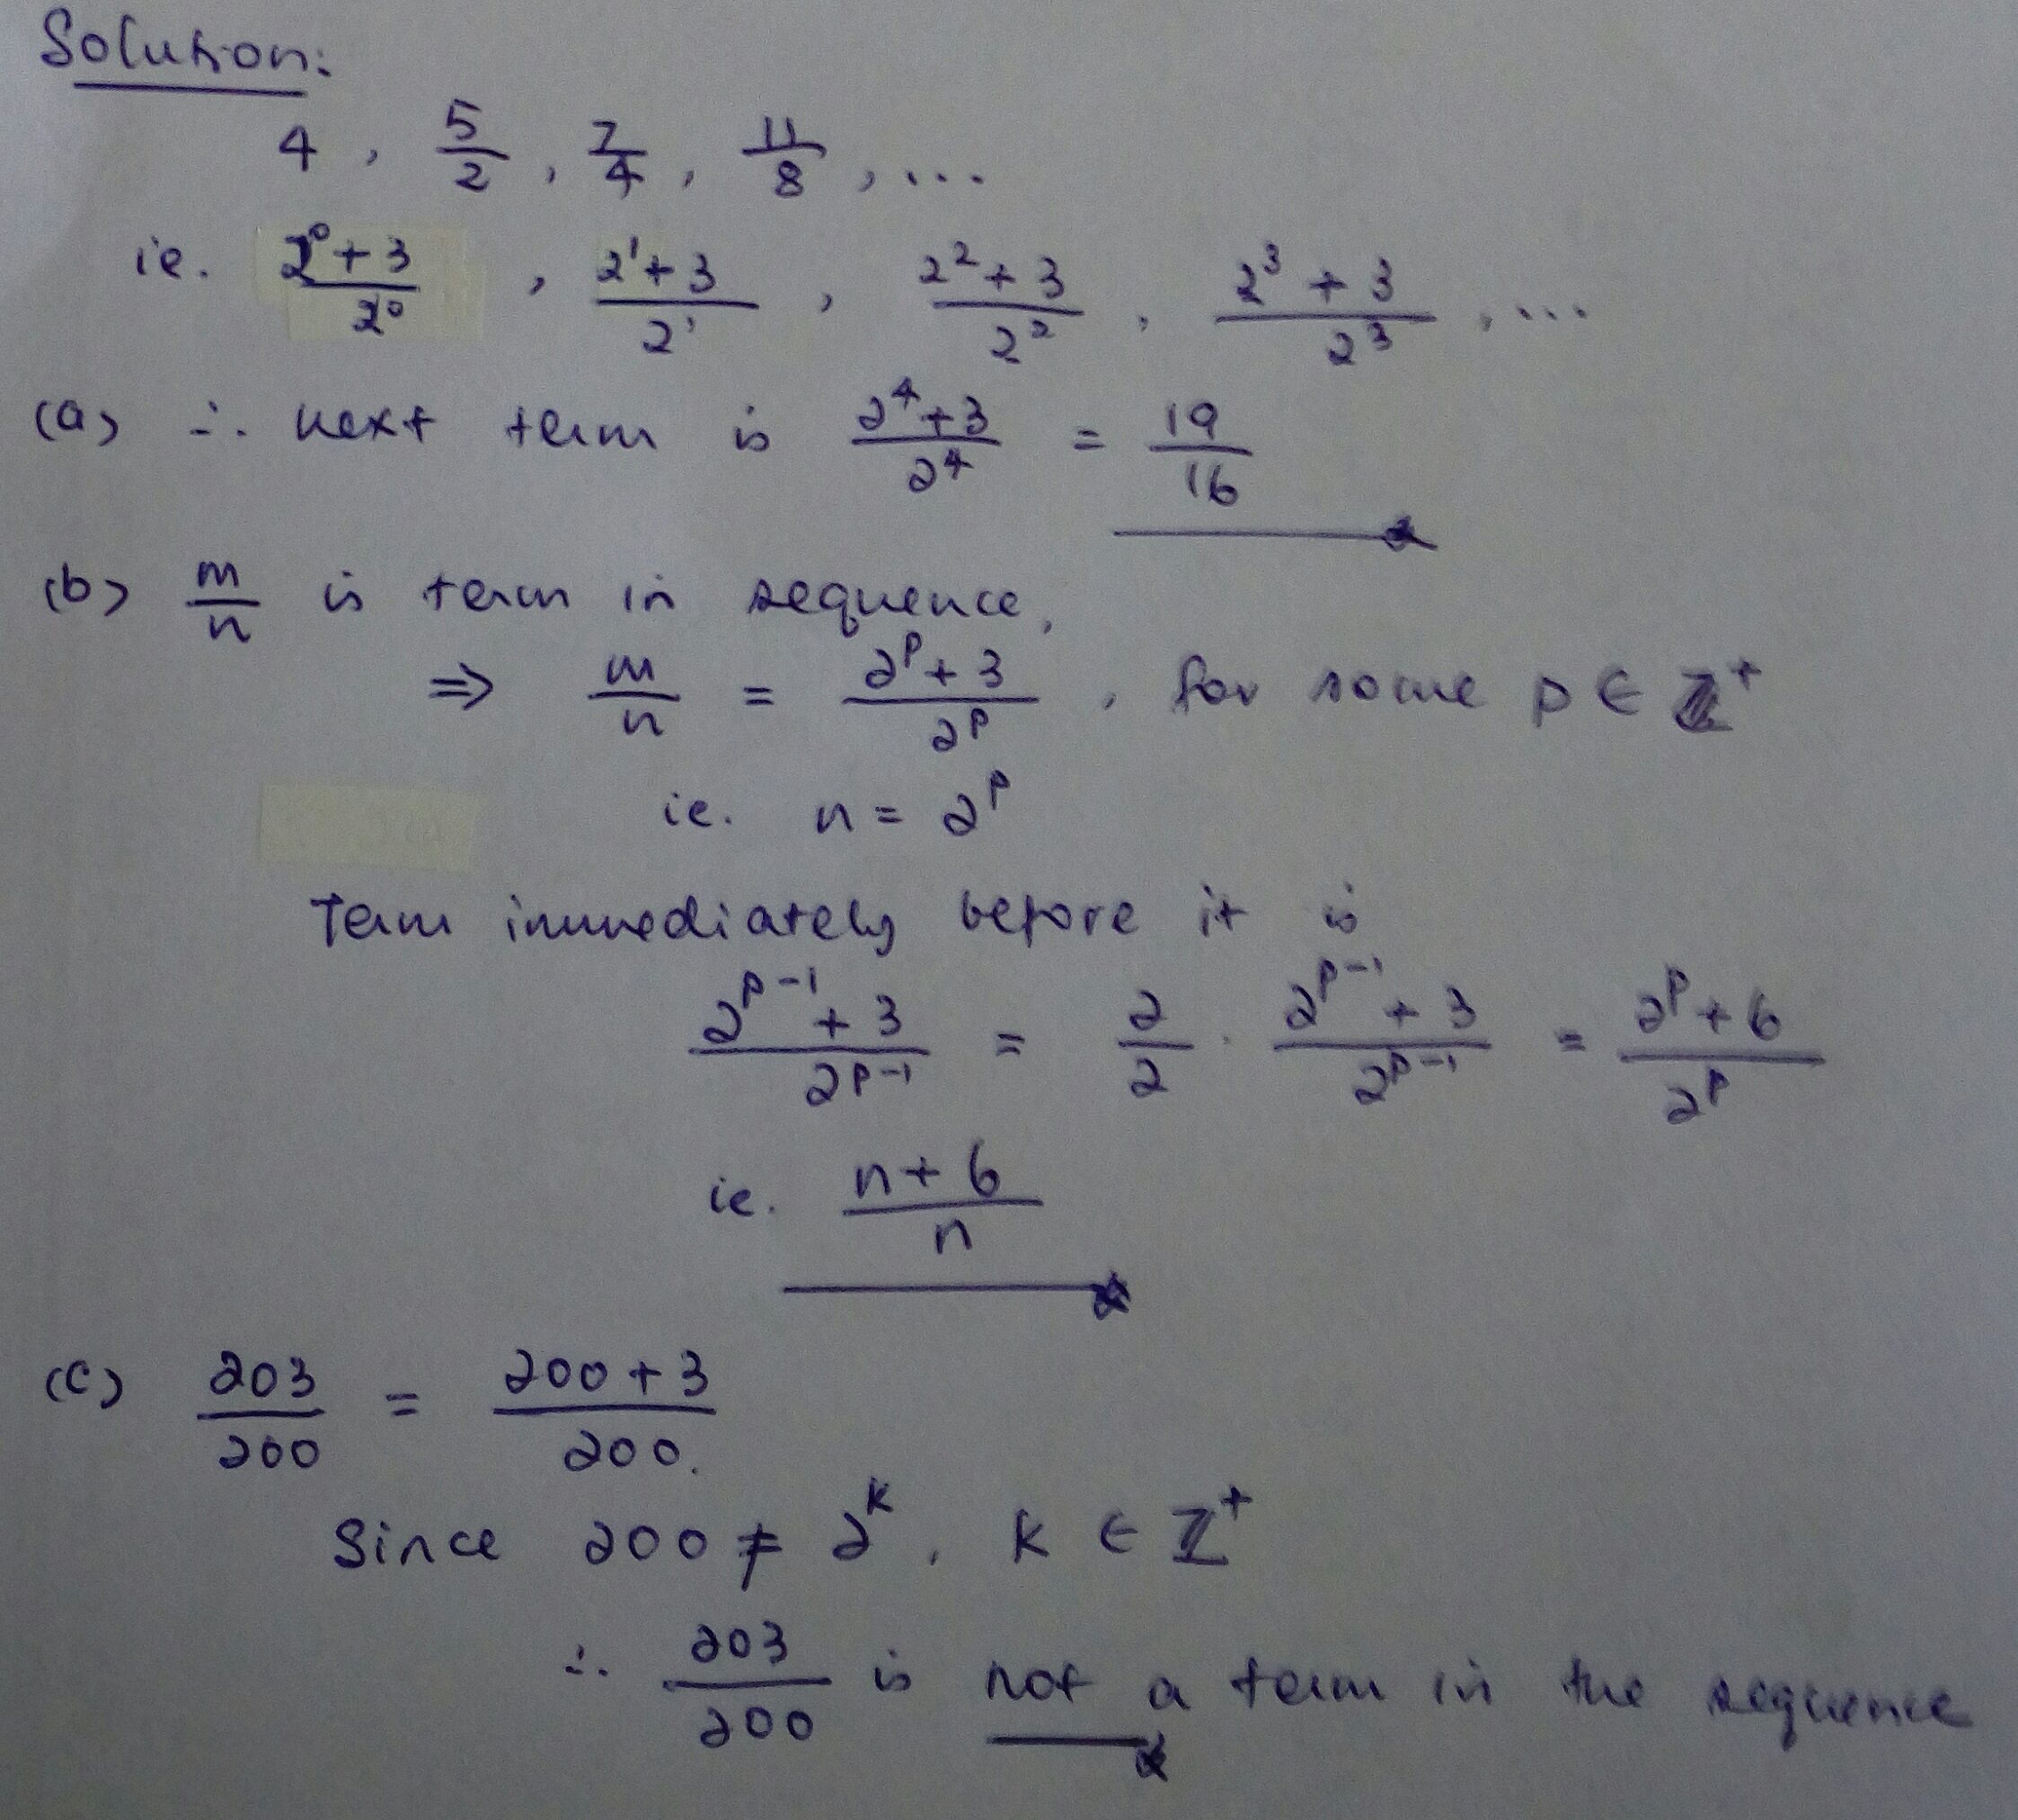 Solution:
4, 5/2, 7/4, 11/8, ...
ie. (2⁰+3)/2⁰, (2¹+3)/2¹, (2²+3)/2², (2³+3)/2³, ...
(a) ∴ next term is (2⁴+3)/2⁴ = 19/16
(b) m/n is term in sequence,
⇒ m/n = (2ᵖ+3)/2ᵖ, for some p ∈ ℤ⁺
ie. n = 2ᵖ
Term immediately before it is
(2ᵖ⁻¹+3)/2ᵖ⁻¹ = 2/2 · (2ᵖ⁻¹+3)/2ᵖ⁻¹ = (2ᵖ+6)/2ᵖ
ie. (n+6)/n
(c) 203/200 = (200+3)/200.
Since 200 ≠ 2ᵏ, k ∈ ℤ⁺
∴ 203/200 is not a term in the sequence